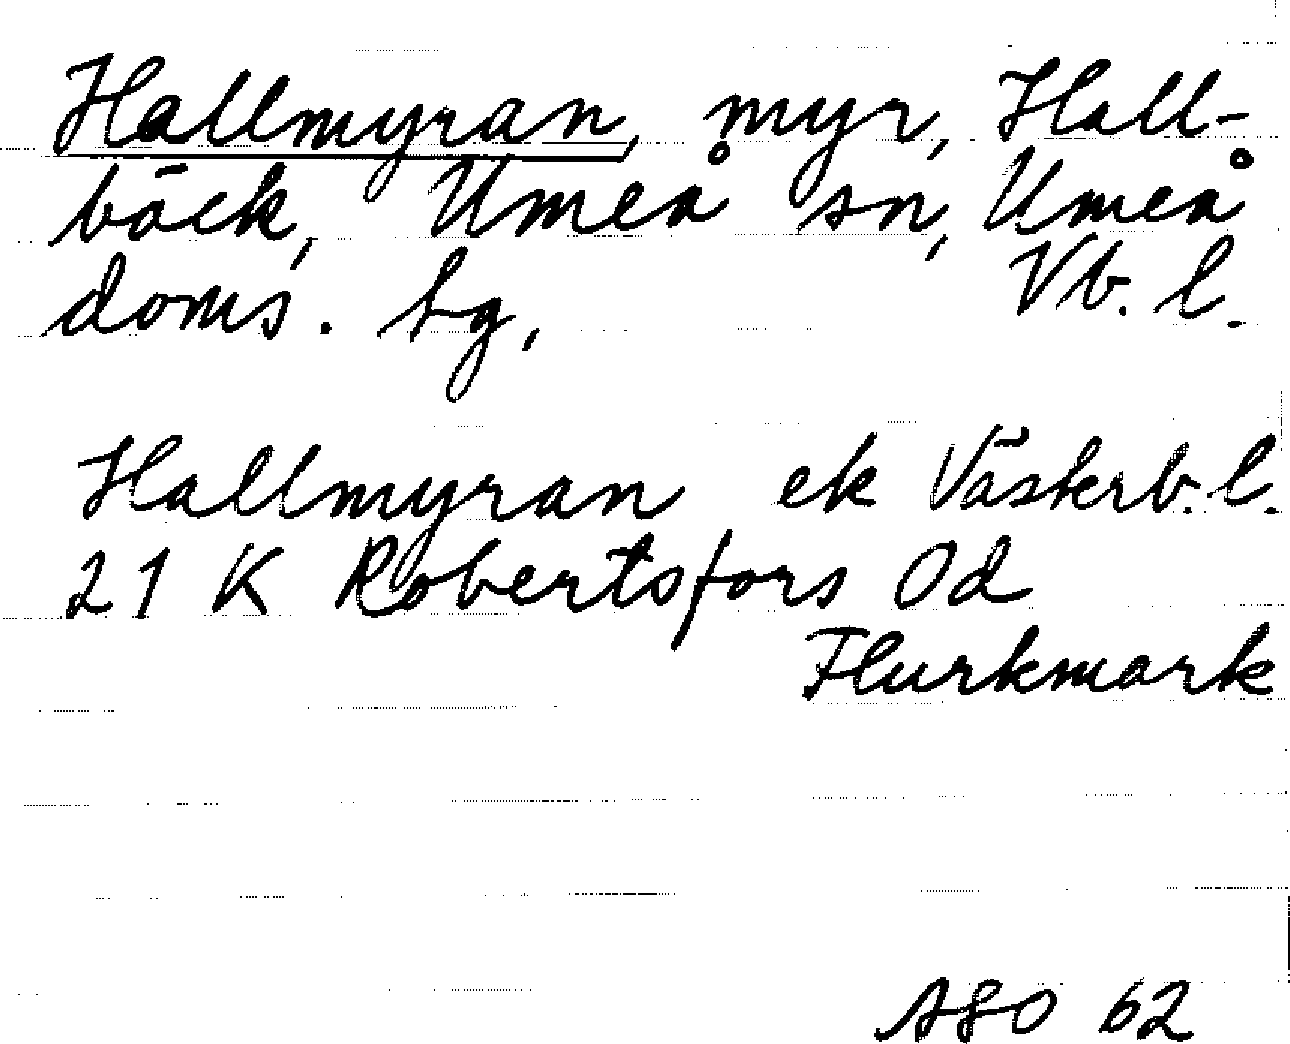 Hallmyran, myr, Hall-
bäck, Umeå sn, Umeå
doms. hg, Vb. l.
Hallmyran ek Västerb. l.
21 K Robertsfors 0d
Flurkmark
ASO 62